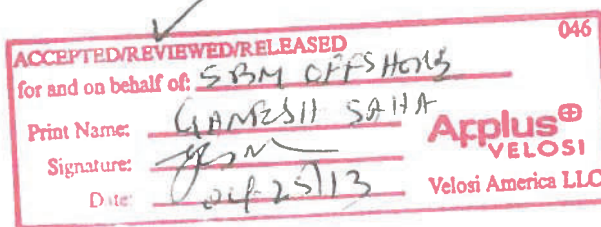 046
ACCEPTED/REVIEWED/RELEASED
for and on behalf of: SBM OFFSHORE
Print Name: GANESH SAHA
Signature:
Date: 04-25/13
Applus⊕
VELOSI
Velosi America LLC